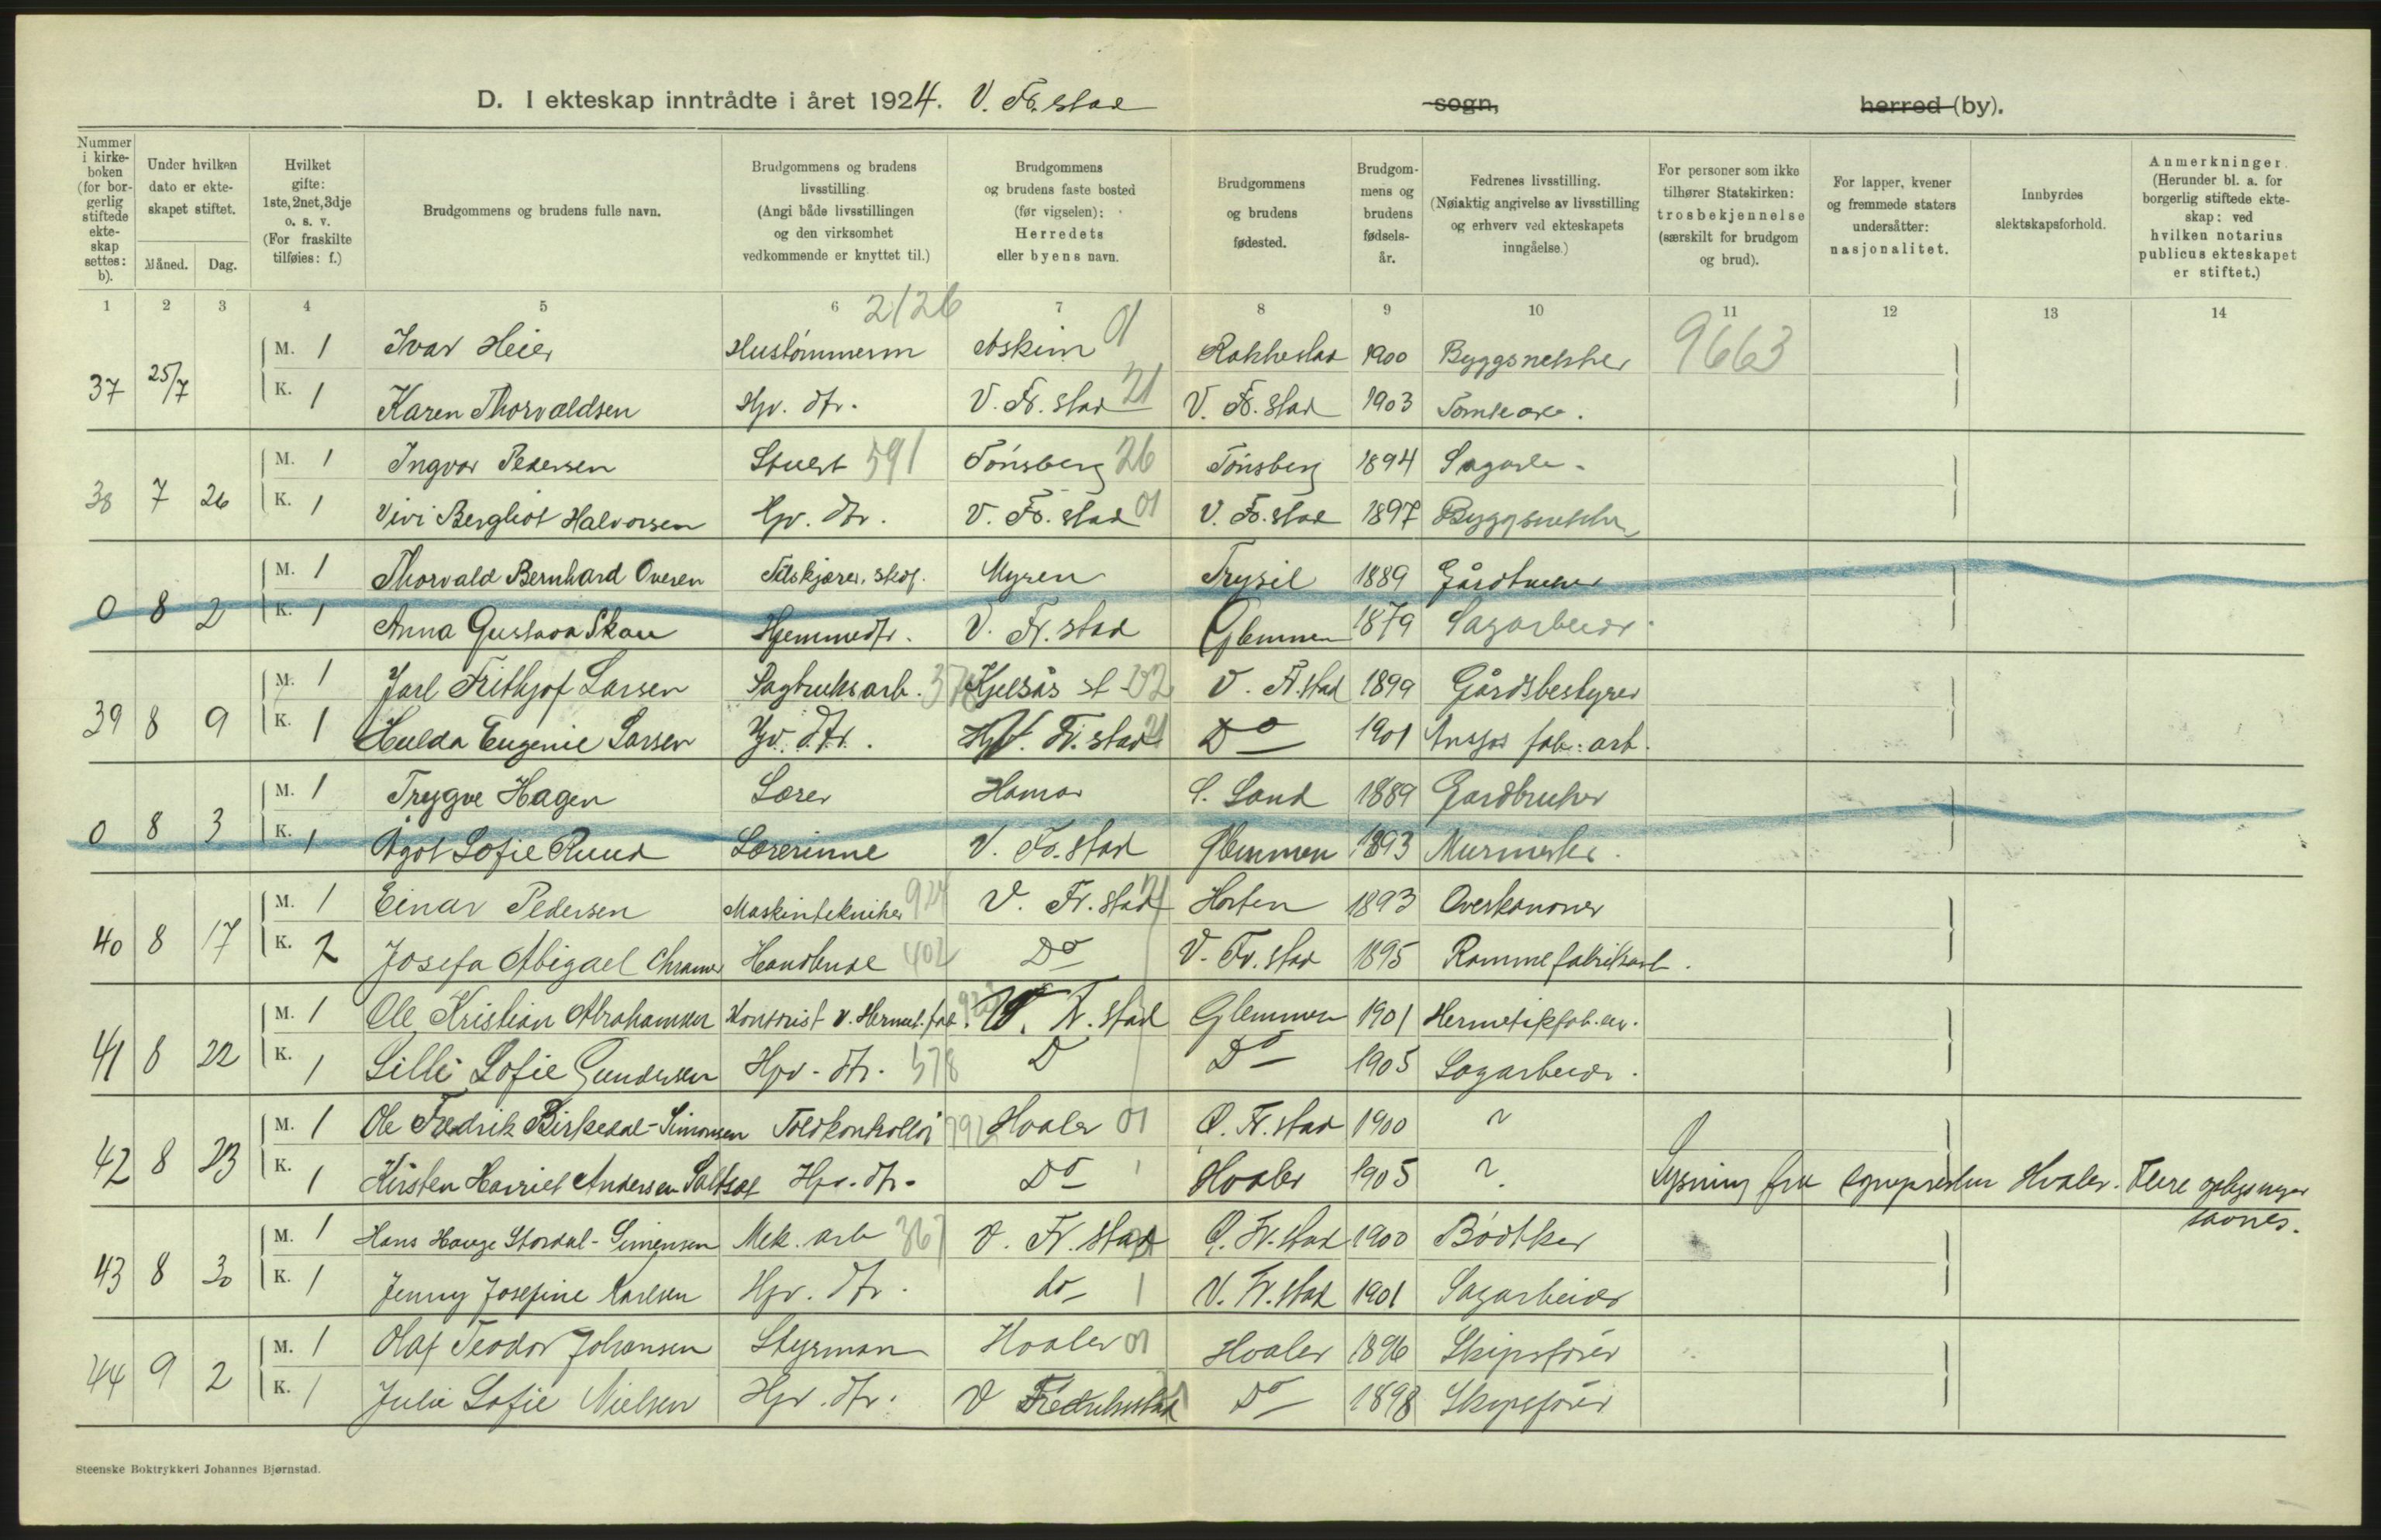 D. I ekteskap inntrådte i året 1924. V. Fr.stad sogn, herred (by).
Nummer i kirkeboken (for borgerlig stiftede ekteskap settes: b).
Under hvilken dato er ekteskapet stiftet.
Måned. Dag.
Hvilket gifte: 1ste, 2net, 3dje o. s. v. (For fraskilte tilføies: f.)
Brudgommens og brudens fulle navn.
Brudgommens og brudens livsstilling (Angi både livsstillingen og den virksomhet vedkommende er knyttet til.)
Brudgommens og brudens faste bosted (før vigselen): Herredets eller byens navn.
Brudgommens og brudens fødested.
Brudgommens og brudens fødselsår.
Fedrenes livsstilling. (Nøiaktig angivelse av livsstilling og erhverv ved ekteskapets inngåelse.)
For personer som ikke tilhører Statskirken: trosbekjennelse (særskilt for brudgom og brud).
For lapper, kvener og fremmede staters undersåtter: nasjonalitet.
Innbyrdes slektskapsforhold.
Anmerkninger. (Herunder bl. a. for borgerlig stiftede ekteskap: ved hvilken notarius publicus ekteskapet er stiftet.)
1 2 3 4 5 6 7 8 9 10 11 12 13 14
2126
37 25/7 M. 1 Ivar Heier Hustømmerm Askim 01 Rakkestad 1900 Byggsnekker 9663
K. 1 Karen Thorvaldsen Hjv. dtr. V. Fr.stad 21 V. Fr.stad 1903 Tomtearb.
38 7 26 M. 1 Ingvar Pedersen Stuert 591 Tønsberg 26 Tønsberg 1894 Sagarb.
K. 1 Vivi Bergliot Halvorsen Hjv. dtr. V. Fr.stad 01 V. Fr.stad 1897 Byggsnekker
0 8 2 M. 1 Thorvald Bernhard Oversen Myren Trysil 1889 Gårdbruker
K. 1 Anna Gustava Skau Hjemmedtr. V. Fr.stad Glemmen 1879 Sagarbeider
39 8 9 M. 1 Jarl Frithjof Larsen Sagbruksarb. 378 Kjelsås st 02 V. Fr.stad 1899 Gårdsbestyrer
K. 1 Hulda Eugenie Larsen Hjv. dtr. V. Fr.stad 21 Do 1901 Ansjos fab. arb.
0 8 3 M. 1 Trygve Hagen Lærer Hamar S. Land 1889 Gardbruker
K. 1 Ågot Sofie Ruud Lærerinne V. Fr.stad Glemmen 1893 Murmester.
40 8 17 M. 1 Einar Pedersen Maskintekniker 924 V. Fr.stad 21 Horten 1893 Overkanoner
K. 2 Josefa Abigael Chramer Handlende 402 Do V. Fr.stad 1895 Rammefabrikarb.
41 8 22 M. 1 Ole Kristian Abrahamsen Kontorist v. Hermet. fab. V. Fr.stad Glemmen 1901 Hermetikfab.
K. 1 Lilli Sofie Gundersen Hjv. dtr. 578 D Do 1905 Sagarbeider.
42 8 23 M. 1 Ole Fredrik Birkedal-Simonsen Toldkontrollør 792 Hvaler 01 Ø. Fr.stad 1900 ?
K. 1 Kirsten Harriet Andersen Hjv. dtr. Do 1 Hvaler 1905 ? Lysning fra sognepresten Hvaler. Flere oplysninger
savnes.
43 8 30 M. 1 Hans Hauge Stordal-Simensen Mek. arb 367 V. Fr.stad 21 Ø. Fr.stad 1900 Bødtker
K. 1 Jenny Josefine Karlsen Hjv. dtr. do 1 V. Fr.stad 1901 Sagarbeider
44 9 2 M. 1 Olaf Teodor Johansen Styrman Hvaler 01 Hvaler 1896 Skipsfører
K. 1 Julie Sofie Nielsen Hjv. dtr. V Fredrikstad Do 1898 Skipsfører
Steenske Boktrykkeri Johannes Bjørnstad.